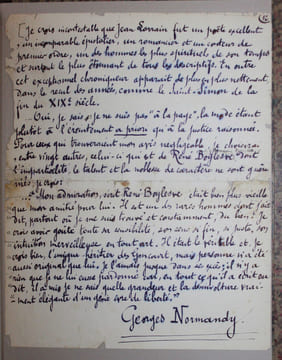 [Je crois incontestable que Jean Lorrain fut un poète excellent,
un incomparable épistolier, un romancier et un conteur de
premier ordre, un des hommes les plus spirituels de son temps
et surtout le plus étonnant de tous les descriptifs. En outre
cet exceptionnel chroniqueur apparaît de plus en plus nettement,
dans le recul des années, comme le Saint-Simon de la
fin du XIXe siècle.
Oui, je sais : je ne suis pas "à la page", la mode étant
plutôt à l'éreintement a priori qu'à la justice raisonnée.
Pour ceux qui trouveraient mon avis négligeable, je choisirai,
entre vingt autres, celui-ci qui est de René Boylesve dont
l'impartialité, le talent et la noblesse de caractère ne sont guère
niés, je crois :
..." Mon admiration, écrit René Boylesve était bien plus vieille
que mon amitié pour lui. Il est un des rares hommes dont j'aie
dit, partout où je me suis trouvé et constamment, du bien. Je
crois avoir goûté toute sa sensibilité, son sens si fin, si juste, son
intuition merveilleuse en tout art. Il était le véritable et, je
crois bien, l'unique héritier des Goncourt, mais personne n'a été
aussi original que lui. Je l'aimais jusque dans ses excès; il n'y a
rien que je ne lui eusse pardonné car, en tout ce qu'il a écrit ou
dit, il a mis je ne sais quelle grandeur et la désinvolture vrai-
ment élégante d'un génie ivre de liberté."
Georges Normandy